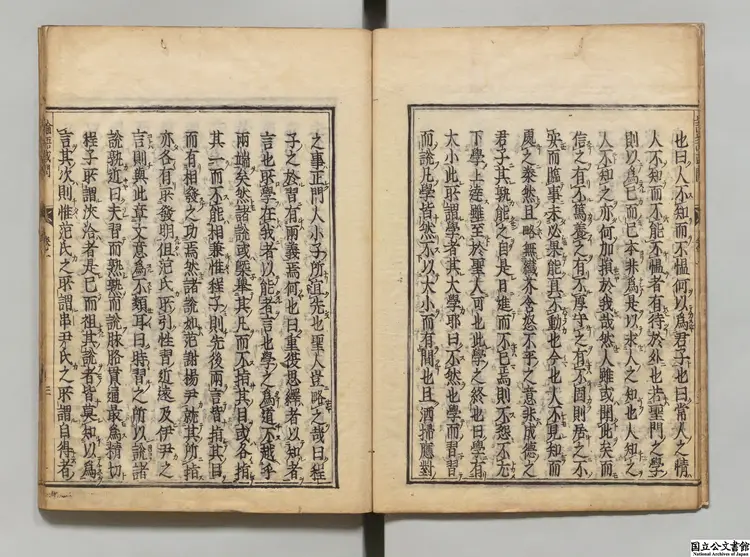 也曰人不知而不慍何以爲君子也曰常人之情
人不知而不能不慍者有待於外也若聖門之學
則以爲己而已本非爲其以求人之知也人知之
人不知之亦何加損於我哉然人雖或聞此矣而
信之有不篤養之有不厚守之有不固則居之不
安而臨事未必果能眞不動也今也人不見知而
處之泰然且略無纖芥含怒不平之意非成德之
君子其孰能之自是日進而不已焉則不怨不尤
下學上達雖至於聖人可也此學之終也曰學有
大小此所謂學者其大學耶曰不然也學而習習
而說凡學皆然不以大小而有間也且洒掃應對
之事正門人小子所宜先也聖人豈略之哉曰程
子之於習有兩義焉何也曰重復思繹者以知者
言也所學在我者以能者言也學之爲道不越乎
兩端矣然諸說或槩舉其凡而不指其目或各指
其一而不能相兼惟程子則先後兩言皆指其目
而有相發之功焉然諸說如范謝楊尹就其所指
亦各有所發明但范氏所引性習近遠及伊尹之
言則與此章文意爲不類耳曰時習之所以說諸
說孰近曰夫習而熟熟而說脉絡貫通最爲精切
程子所謂浹洽者是已而祖其說者皆莫知以爲
言其次則惟范氏之所謂串尹氏之所謂自得者
論語或問
卷一
三
国立公文書館
National Archives of Japan